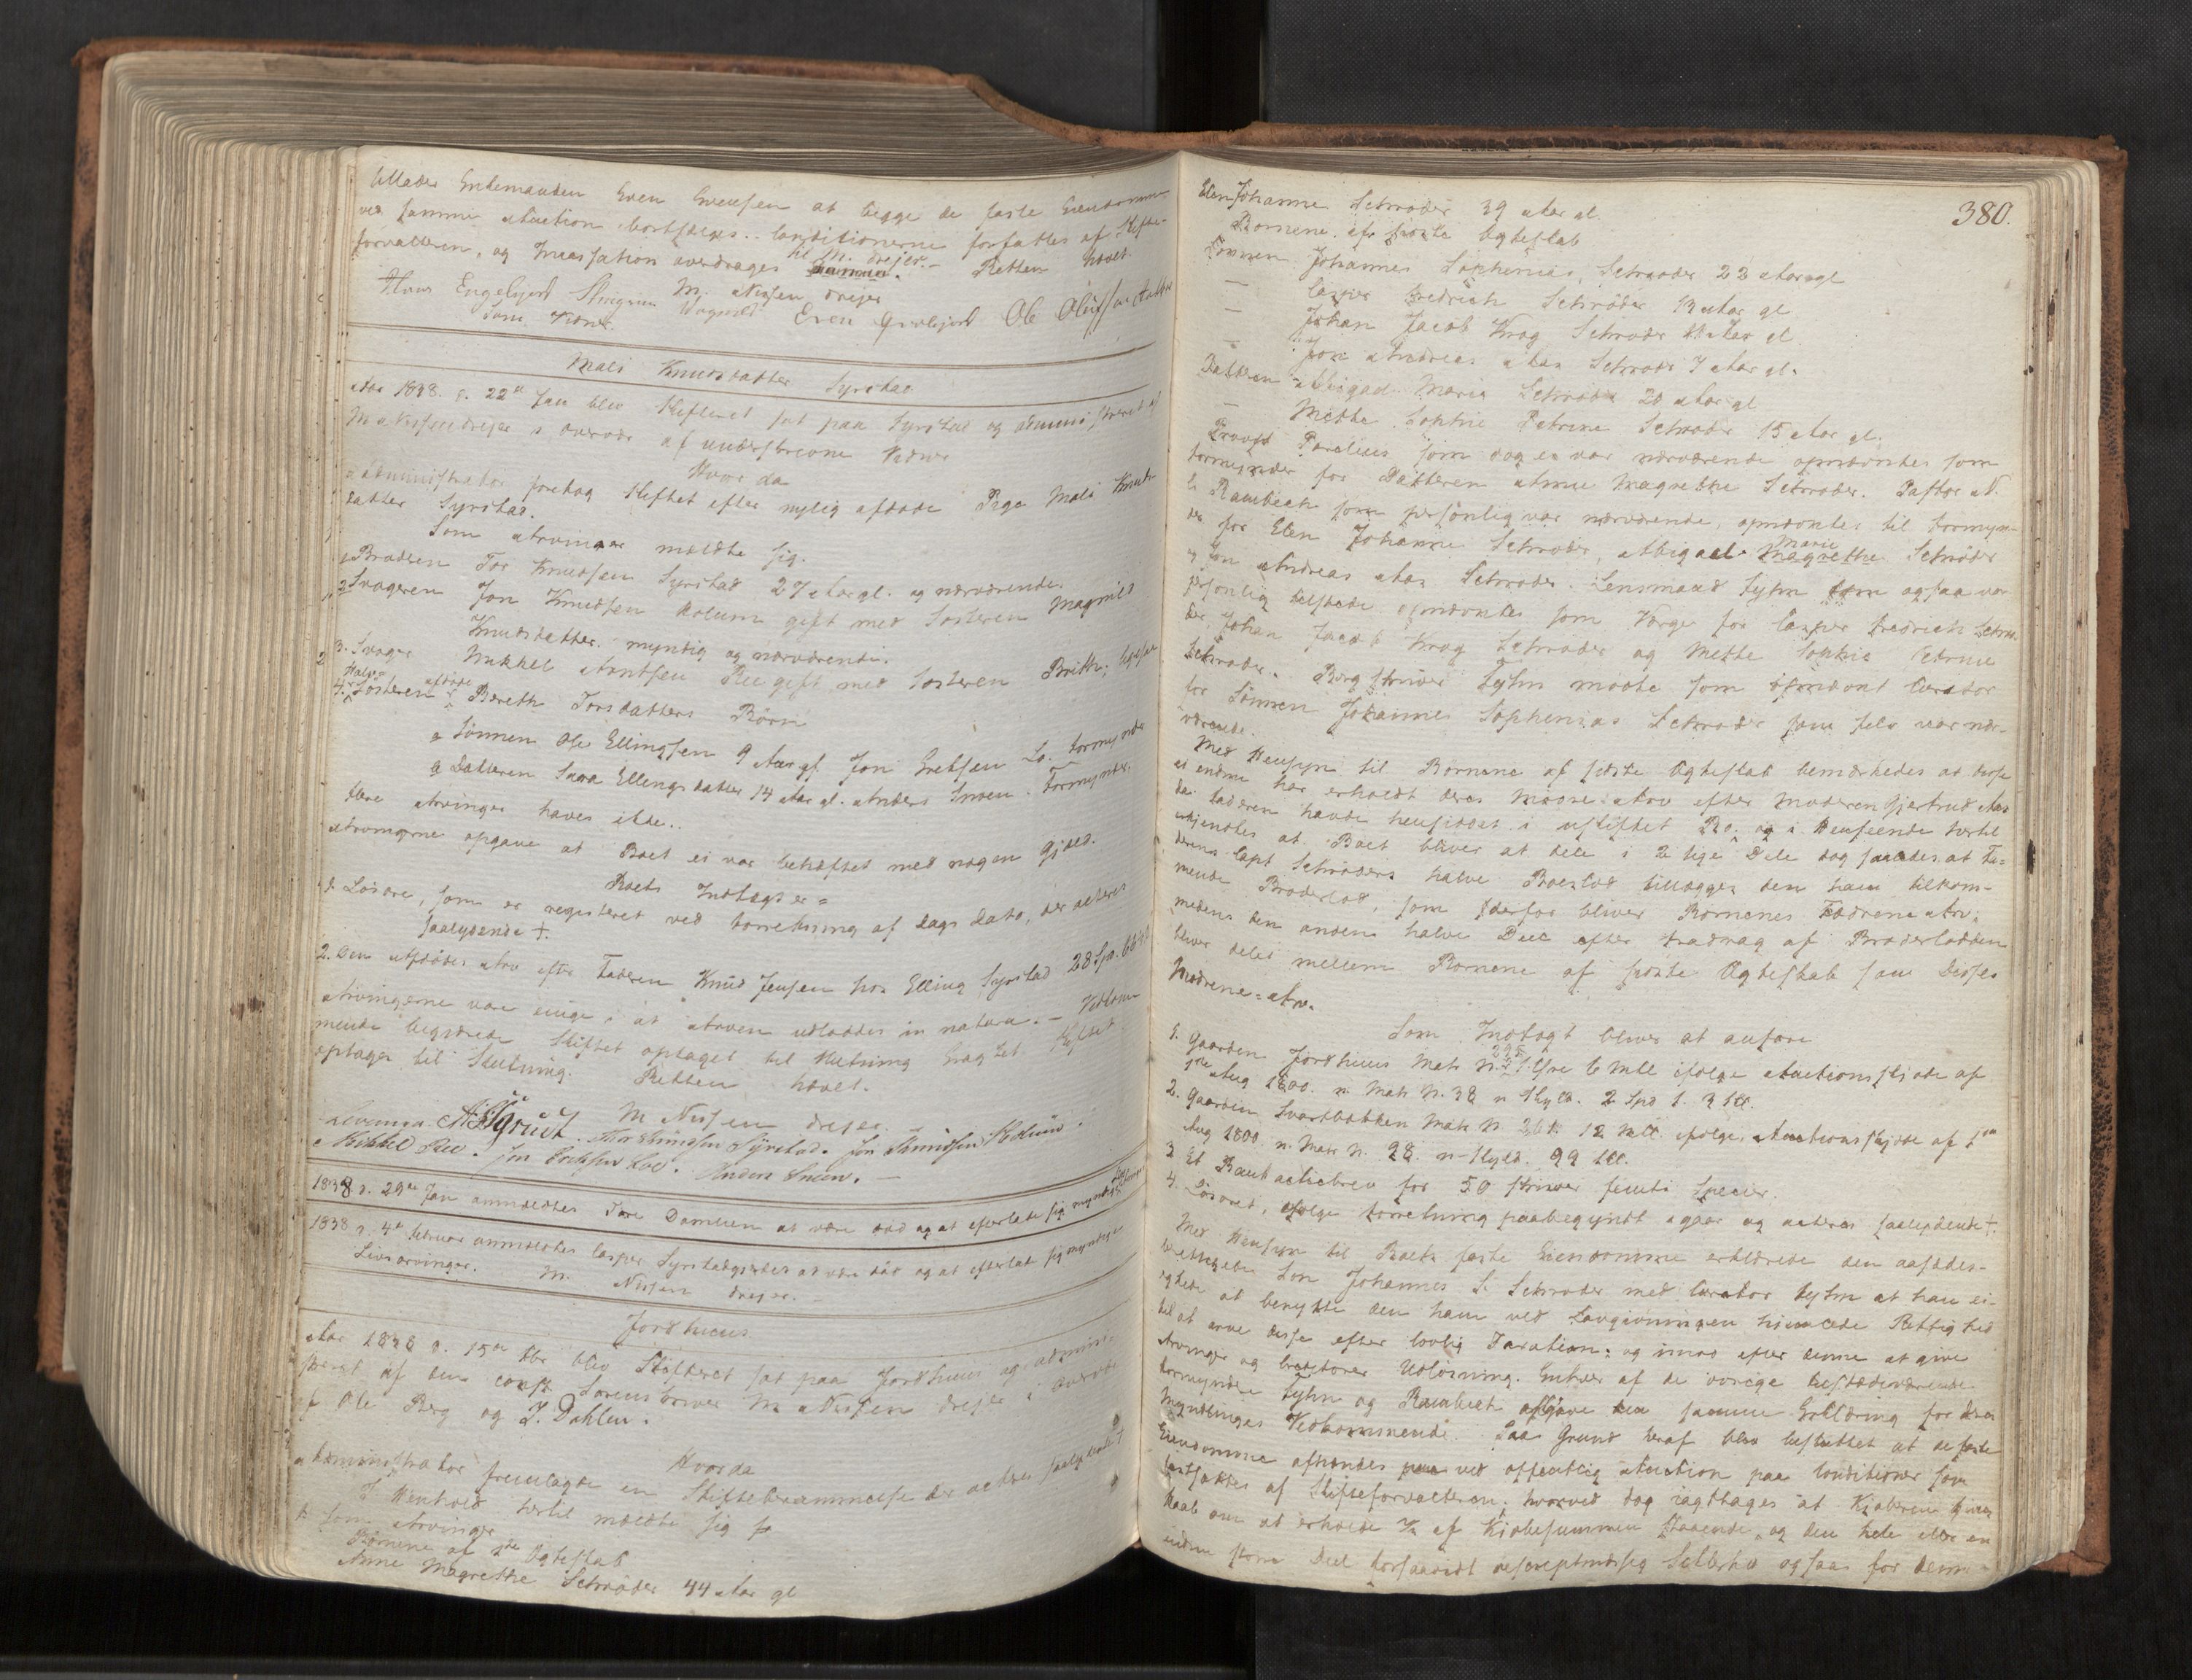 tillader Enkemanden Even Evensen at begge de faste Eiendomme
ved samme Auction bortsælges. Conditionerne forfattes af Skifte-
forvalteren, og Incassation overdrages til M. Drejer. Retten hævet.
M. Nissen Drejer
Hans Engelsjord Even Ole Olufsen
som Vidner.
Mali Knudsdatter Syrstad
Aar 1838. d. 22de Jan blev Skifteret sat paa Syrstad og administreret af
M Nissen Drejer i overvær af underskrevne Vidner
Hvor da
Administrator foretog Skiftet efter nylig afdøde Pige Mali Knuds-
datter Syrstad.
Som Arvinger meldte sig.
1 Broderen Tor Knudsen Syrstad 27 Aar gl. og nærværende.
2 Svogeren Jon Knudsen Holum gift med Søsteren Magnild
Knudsdatter. myndig og nærværende.
3. Svoger Mikkel Arntsen Ree gift med Søsteren Brith; ligesaa
4. Halv-Søsteren afdøde Bereth Torsdatters Børn
a Sønnen Ole Ellingsen 9 Aar gl. Jon Eretsen Lo. Formynder
b Datteren Sara Ellingsdatter 14 Aar gl. Anders Snoen. Formynder.
Flere Arvinger haves ikke..
Arvingerne opgave at Boet ei var behæftet med nogen Gjæld.
Boets Indtægt er
1. Løsøre, som er registeret ved Forretning af Dags Dato, der acteres
saalydende †.
2. Den Afdødes Arv efter Faderen Knud Jensen hos Elling Syrstad 28 Spd.
Arvingerne vare enige i at Arven udloddes in natura. – Vedkom-
mende begjærede Skiftet optaget til Slutning hvorfor Skiftet
optages til Slutning. Retten hævet.
M Nissen Drejer.
Thor Knudsen Syrstad. Jon Knudsen Holum.
Mikkel Ree. Jon Eretsen Loe. Anders Snoen. –
1838 d. 29de Jan anmeldtes Tore Damlien at være død og at efterlade sig myndige
1838 d. 4de Februar anmeldtes Casper Syrstadgjerdet at være død og at efterlade sig myndige
Livsarvinger. M. Nissen Drejer.
Jordhuus
Aar 1838 d. 15de blev Skifteret sat paa Jordhuus og admini-
streret af den const Sorenskriver M Nissen Drejer i overvær
af Ole Berg og J. Dahlen.
Hvorda
Administrator fremlagde en Skifteberammelse der acteres saalydende †
I Henhold hertil meldte sig
som Arvinger
Børnene af 1ste Ægteskab
Anne Magrethe Schrøder 44 Aar gl
380.
Elen Johanne Schrøder 39 Aar gl.
Børnene af sidste Ægteskab
Sønnen Johannes Sophenias Schrøder 22 Aar gl
– Casper Fredrich Schrøder 13 Aar gl
– Johan Jacob Krog Schrøder Aar gl
– Jon Andreas Aas Schrøder 7 Aar gl.
Datteren Abigael Marie Schrøder 20 Aar gl
– Mette Sophie Petrine Schrøder 15 Aar gl.
Provst Parelius som dog ei var nærværende opnævntes som
Formynder for Datteren Anne Magrethe Schrøder. Pastor N.
L. Rambech som personlig var nærværende, opnævntes til Formyn-
der for Elen Johanne Schrøder, Abigael Marie Magrethe Schrøder
og Jon Andreas Aas Schrøder. Lensmand Lyhn som ogsaa var
personlig tilstæde opnævntes som Værge for Casper Fredrich Schrø-
der, Johan Jacob Krog Schrøder og Mette Sophie Petrine
Schrøder. Bergskriver Lyhn mødte som opnævnt Curator
for Sønnen Johannes Sophenias Schrøder som selv var nær-
værende.
Med Hensyn til Børnene af første Ægteskab bemærkedes at disse
ei endnu har erholdt deres Mødrene Arv efter Moderen Gjertrud Aas
da Faderen havde hensiddet i uskiftet Bo, og i Henseende hertil
skjøndtes at Boet bliver at dele i 2 lige Dele dog saaledes at Fa-
derens Capt Schrøders halve Boeslod tillægges den ham tilkom-
mende Broderlod, som derfor bliver Børnenes Fædrene Arv.
medens den anden halve Deel efter Fradrag af Broderlodden
bliver delet mellem Børnene af første Ægteskab som Disses
Mødrene-Arv.
Som Indtægt bliver at anføre
1. Gaarden Jordhuus Matr N. 295 1 Øre 6 Mll ifølge Auctionsskjøde af
1ste Aug 1800. n. Matr N. 38 n Skyld. 2 Spd 1. 3 ß.
2. Gaarden Svartbækken Matr N 12 Mll. ifølge Auctionsskjøde af 1ste
Aug 1800. n. Matr N. 28. n Skyld. 99 ß.
3 Et Bankactiebrev for 50 skriver femti Specier.
4. Løsøret, ifølge Forretning paabegyndt igaar og acteres saalydende †.
Med Hensyn til Boets faste Eiendomme erklærede den aasædes-
berettigede Søn Johannes S. Schrøder med Curator Lyhn at han ei
agtede at benytte den ham ved Lovgivningen hjemlede Rettighed
til at arve disse efter lovlig Taxation; og imod efter denne at give
Arvinger og Creditorer Udløsning. Enhver af de øvrige tilstædeværende
Formyndere Lyhn og Rambech afgave den samme Erklæring for deres
Myndlinges Vedkommende. Paa Grund heraf blev besluttet at de faste
Eiendomme afhændes paa ved offentlig Auction paa Conditioner som
forfattes af Skifteforvalteren; hvorved dog iagttages at Kjøberen gives
Haab om at erholde ⅔ af Kjøbesummen staaende, og den hele eller en
endnu større Deel forsaavidt Sælger og saa for dem